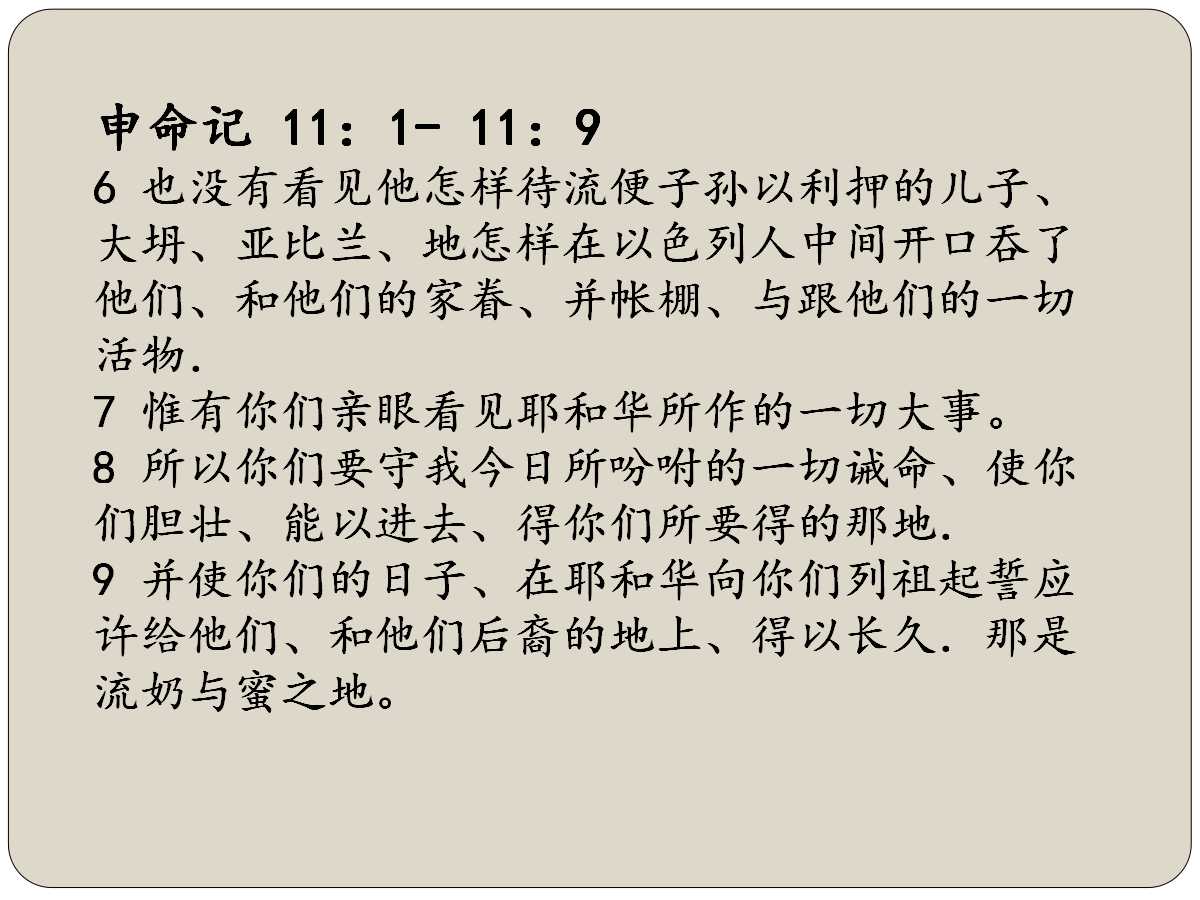 申命记 11：1- 11：9
6 也没有看见他怎样待流便子孙以利押的儿子、
大坍、亚比兰、地怎样在以色列人中间开口吞了
他们、和他们的家眷、并帐棚、与跟他们的一切
活物.
7 惟有你们亲眼看见耶和华所作的一切大事。
8 所以你们要守我今日所吩咐的一切诫命、使你
们胆壮、能以进去、得你们所要得的那地.
9 并使你们的日子、在耶和华向你们列祖起誓应
许给他们、和他们后裔的地上、得以长久. 那是
流奶与蜜之地。